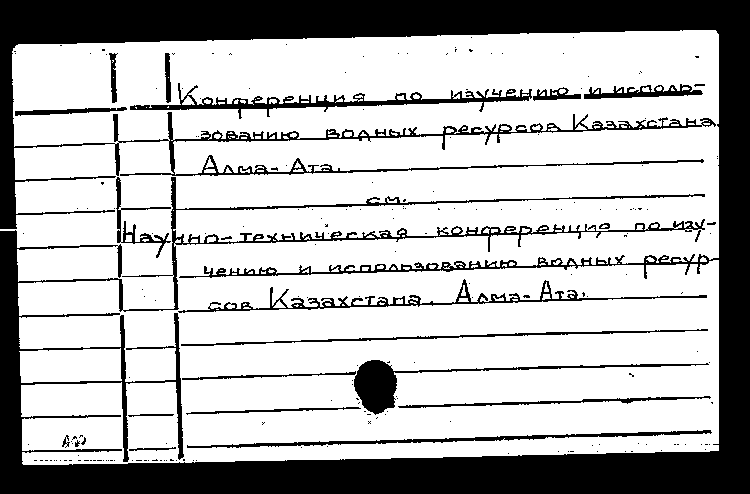 Конференция по изучению и исполь-
зованию водных ресурсов Казахстана.
Алма-Ата.
см.
Научно-техническая конференция по изу-
чению и использованию водных ресур-
сов Казахстана. Алма-Ата.